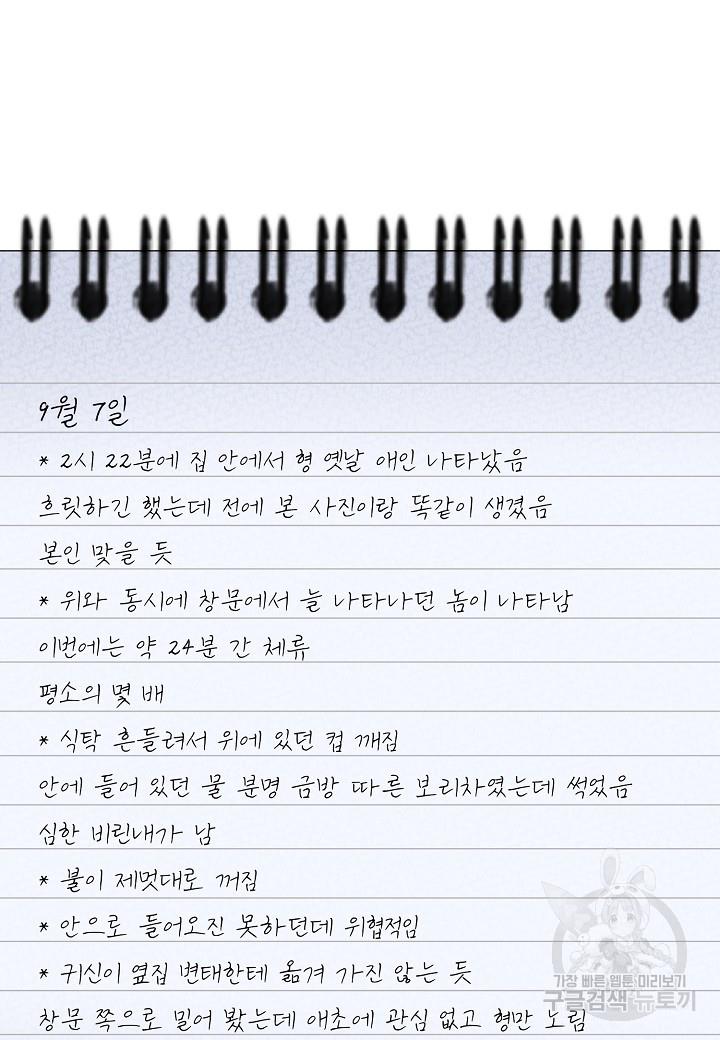 9월 7일
* 2시 22분에 집 안에서 형 옛날 애인 나타났음
흐릿하긴 했는데 전에 본 사진이랑 똑같이 생겼음
본인 맞을 듯
* 위와 동시에 창문에서 늘 나타나던 놈이 나타남
이번에는 약 24분 간 체류
평소의 몇 배
* 식탁 흔들려서 위에 있던 컵 깨짐
안에 들어 있던 물 분명 금방 따른 보리차였는데 썩었음
심한 비린내가 남
* 불이 제멋대로 꺼짐
* 안으로 들어오진 못하던데 위협적임
* 귀신이 옆집 변태한테 옮겨 가진 않는 듯
창문 쪽으로 밀어 봤는데 애초에 관심 없고 형만 노림
가장 빠른 웹툰 미리보기
구글검색 뉴토끼